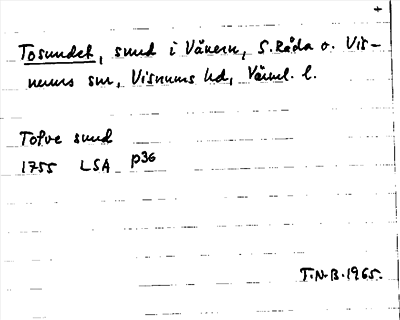 Tosundet, sund i Vänern, S. Råda o. Vis-
nums sn, Visnums hd, Värml. l.
Tofve sund
1755 LSA p36
T.N.B. 1965.